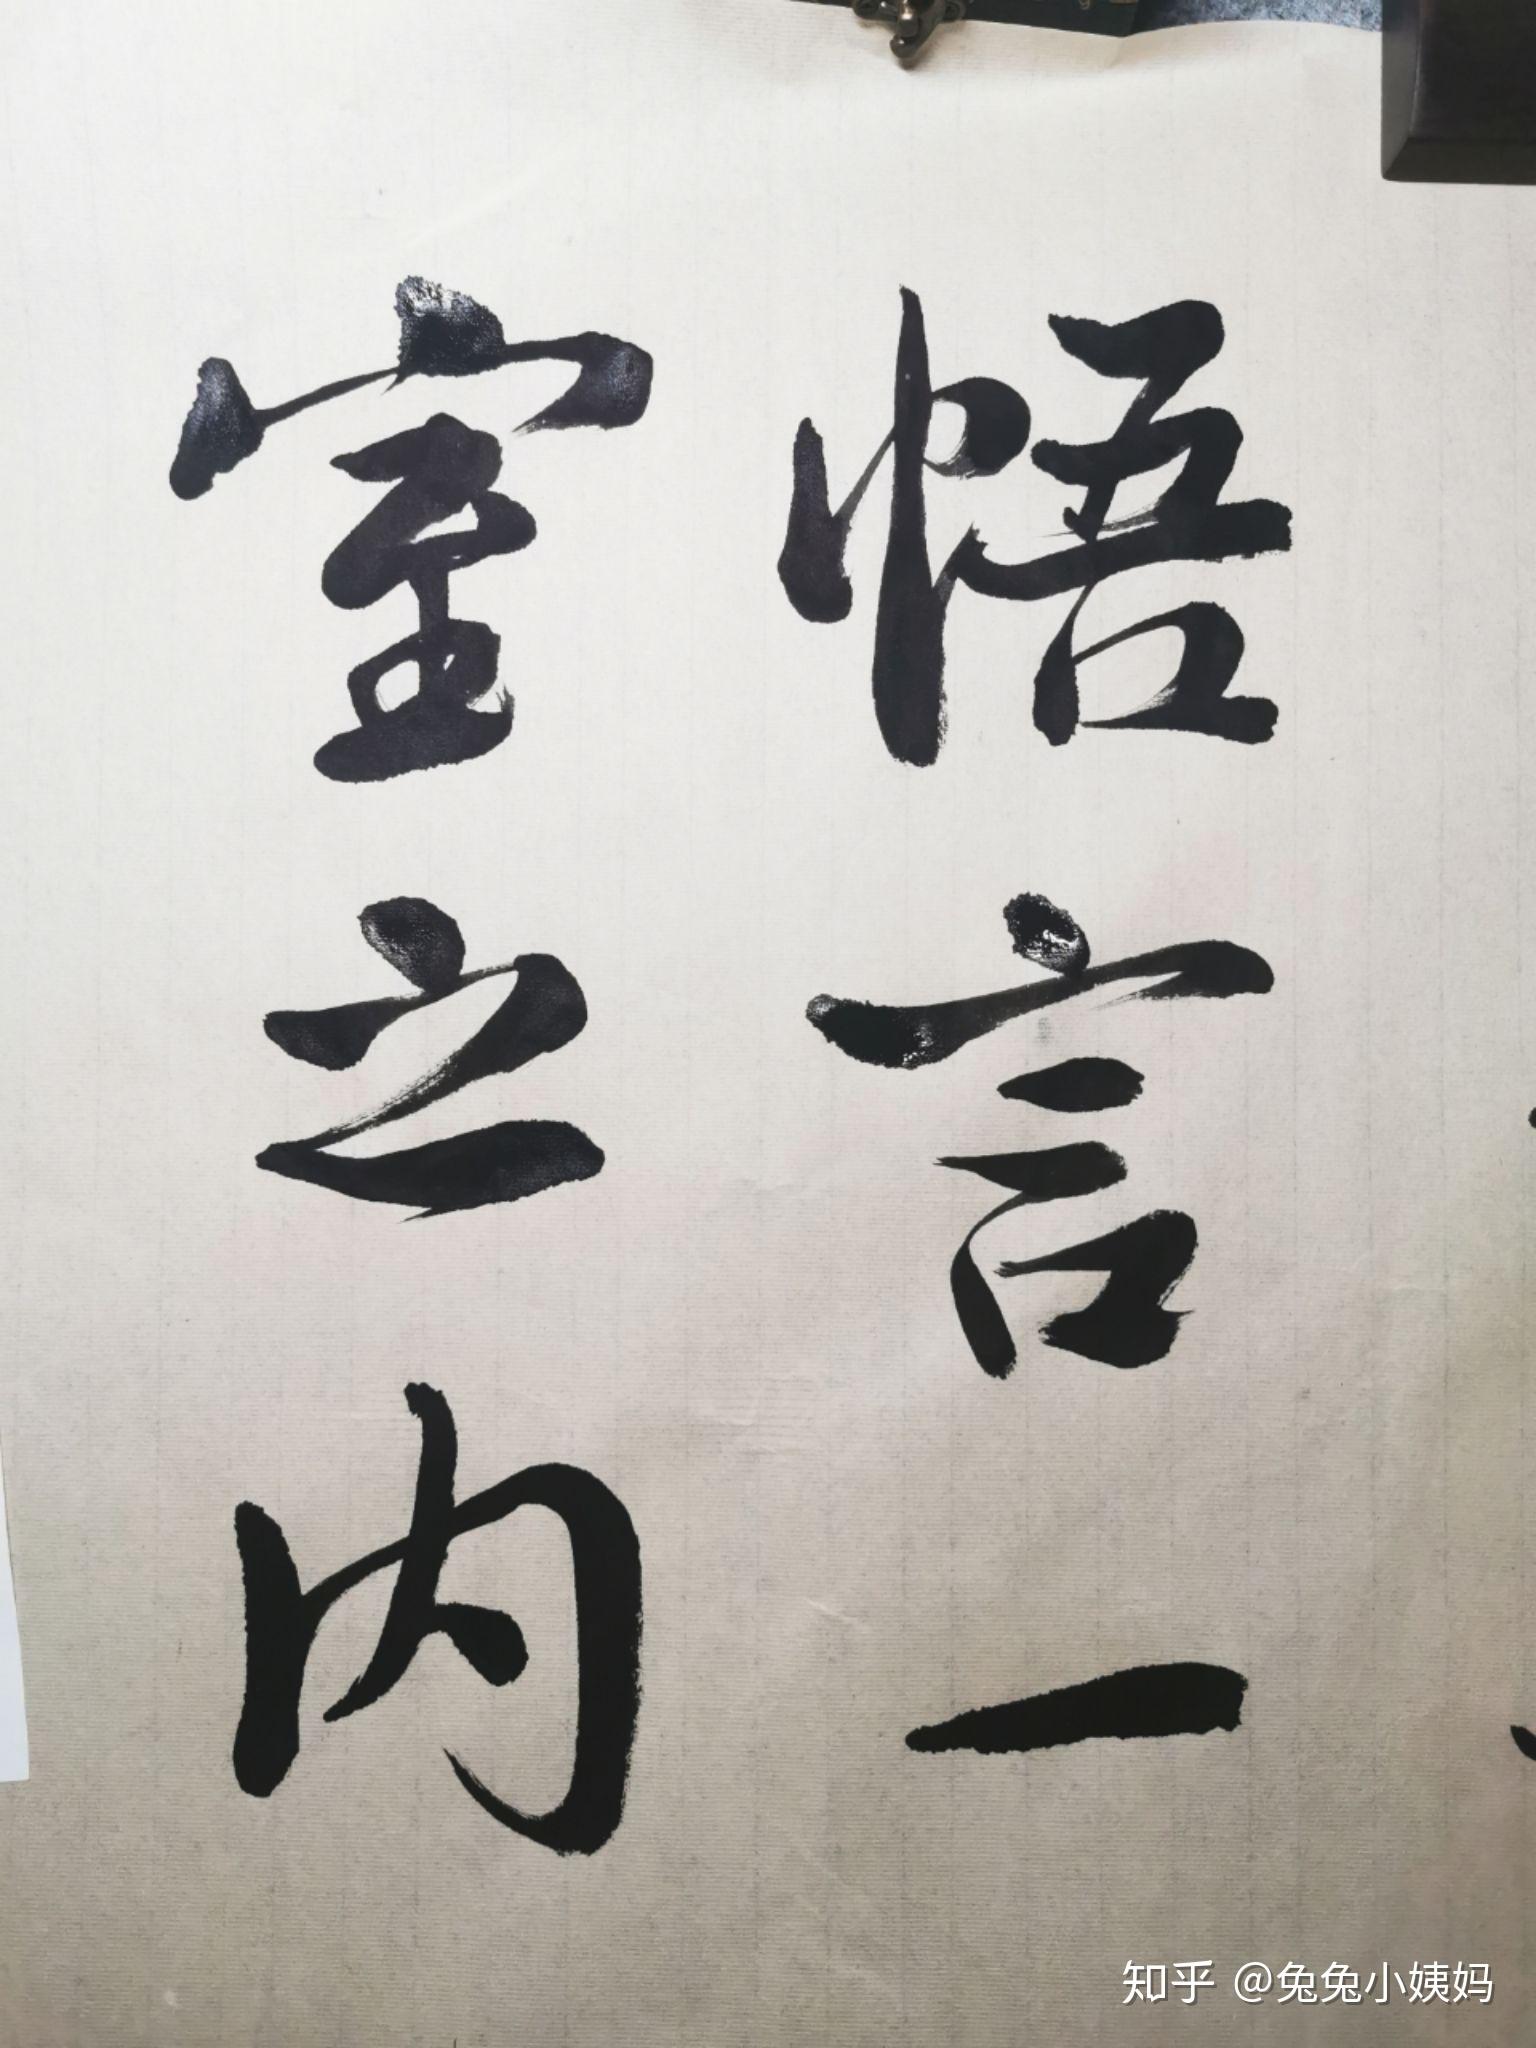 悟言一
室之内
知乎 @兔兔小姨妈